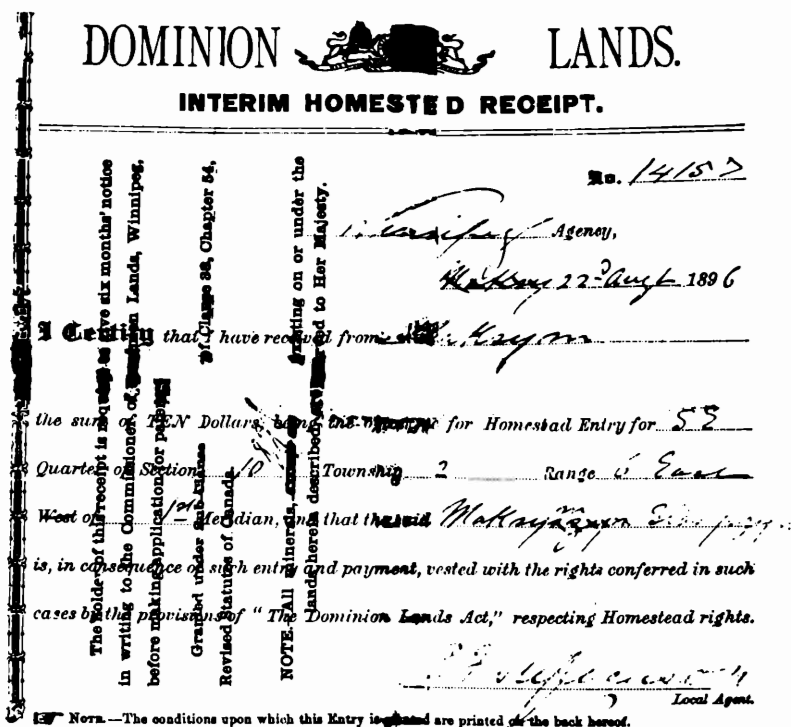 DOMINION LANDS.
INTERIM HOMESTED RECEIPT.
No. 14157
Agency,
22nd Augt 1896
I Certify that I have received from
the sum of TEN Dollars, being the for Homestead Entry for SE
Quarter of Section 10 Township 2 Range 6 East
West of 1st Meridian, and that the said
is, in consequence of such entry and payment, vested with the rights conferred in such
cases by the provisions of "The Dominion Lands Act," respecting Homestead rights.
Local Agent.
NOTE.—The conditions upon which this Entry is granted are printed on the back hereof.
The Holder of this receipt is required to give six months' notice
in writing to the Commissioner of Dominion Lands, Winnipeg,
before making application for patent.
Granted under Sub-clause of Clause 38, Chapter 54,
Revised Statutes of Canada.
NOTE. All minerals, existing on or under the
lands herein described, are reserved to Her Majesty.